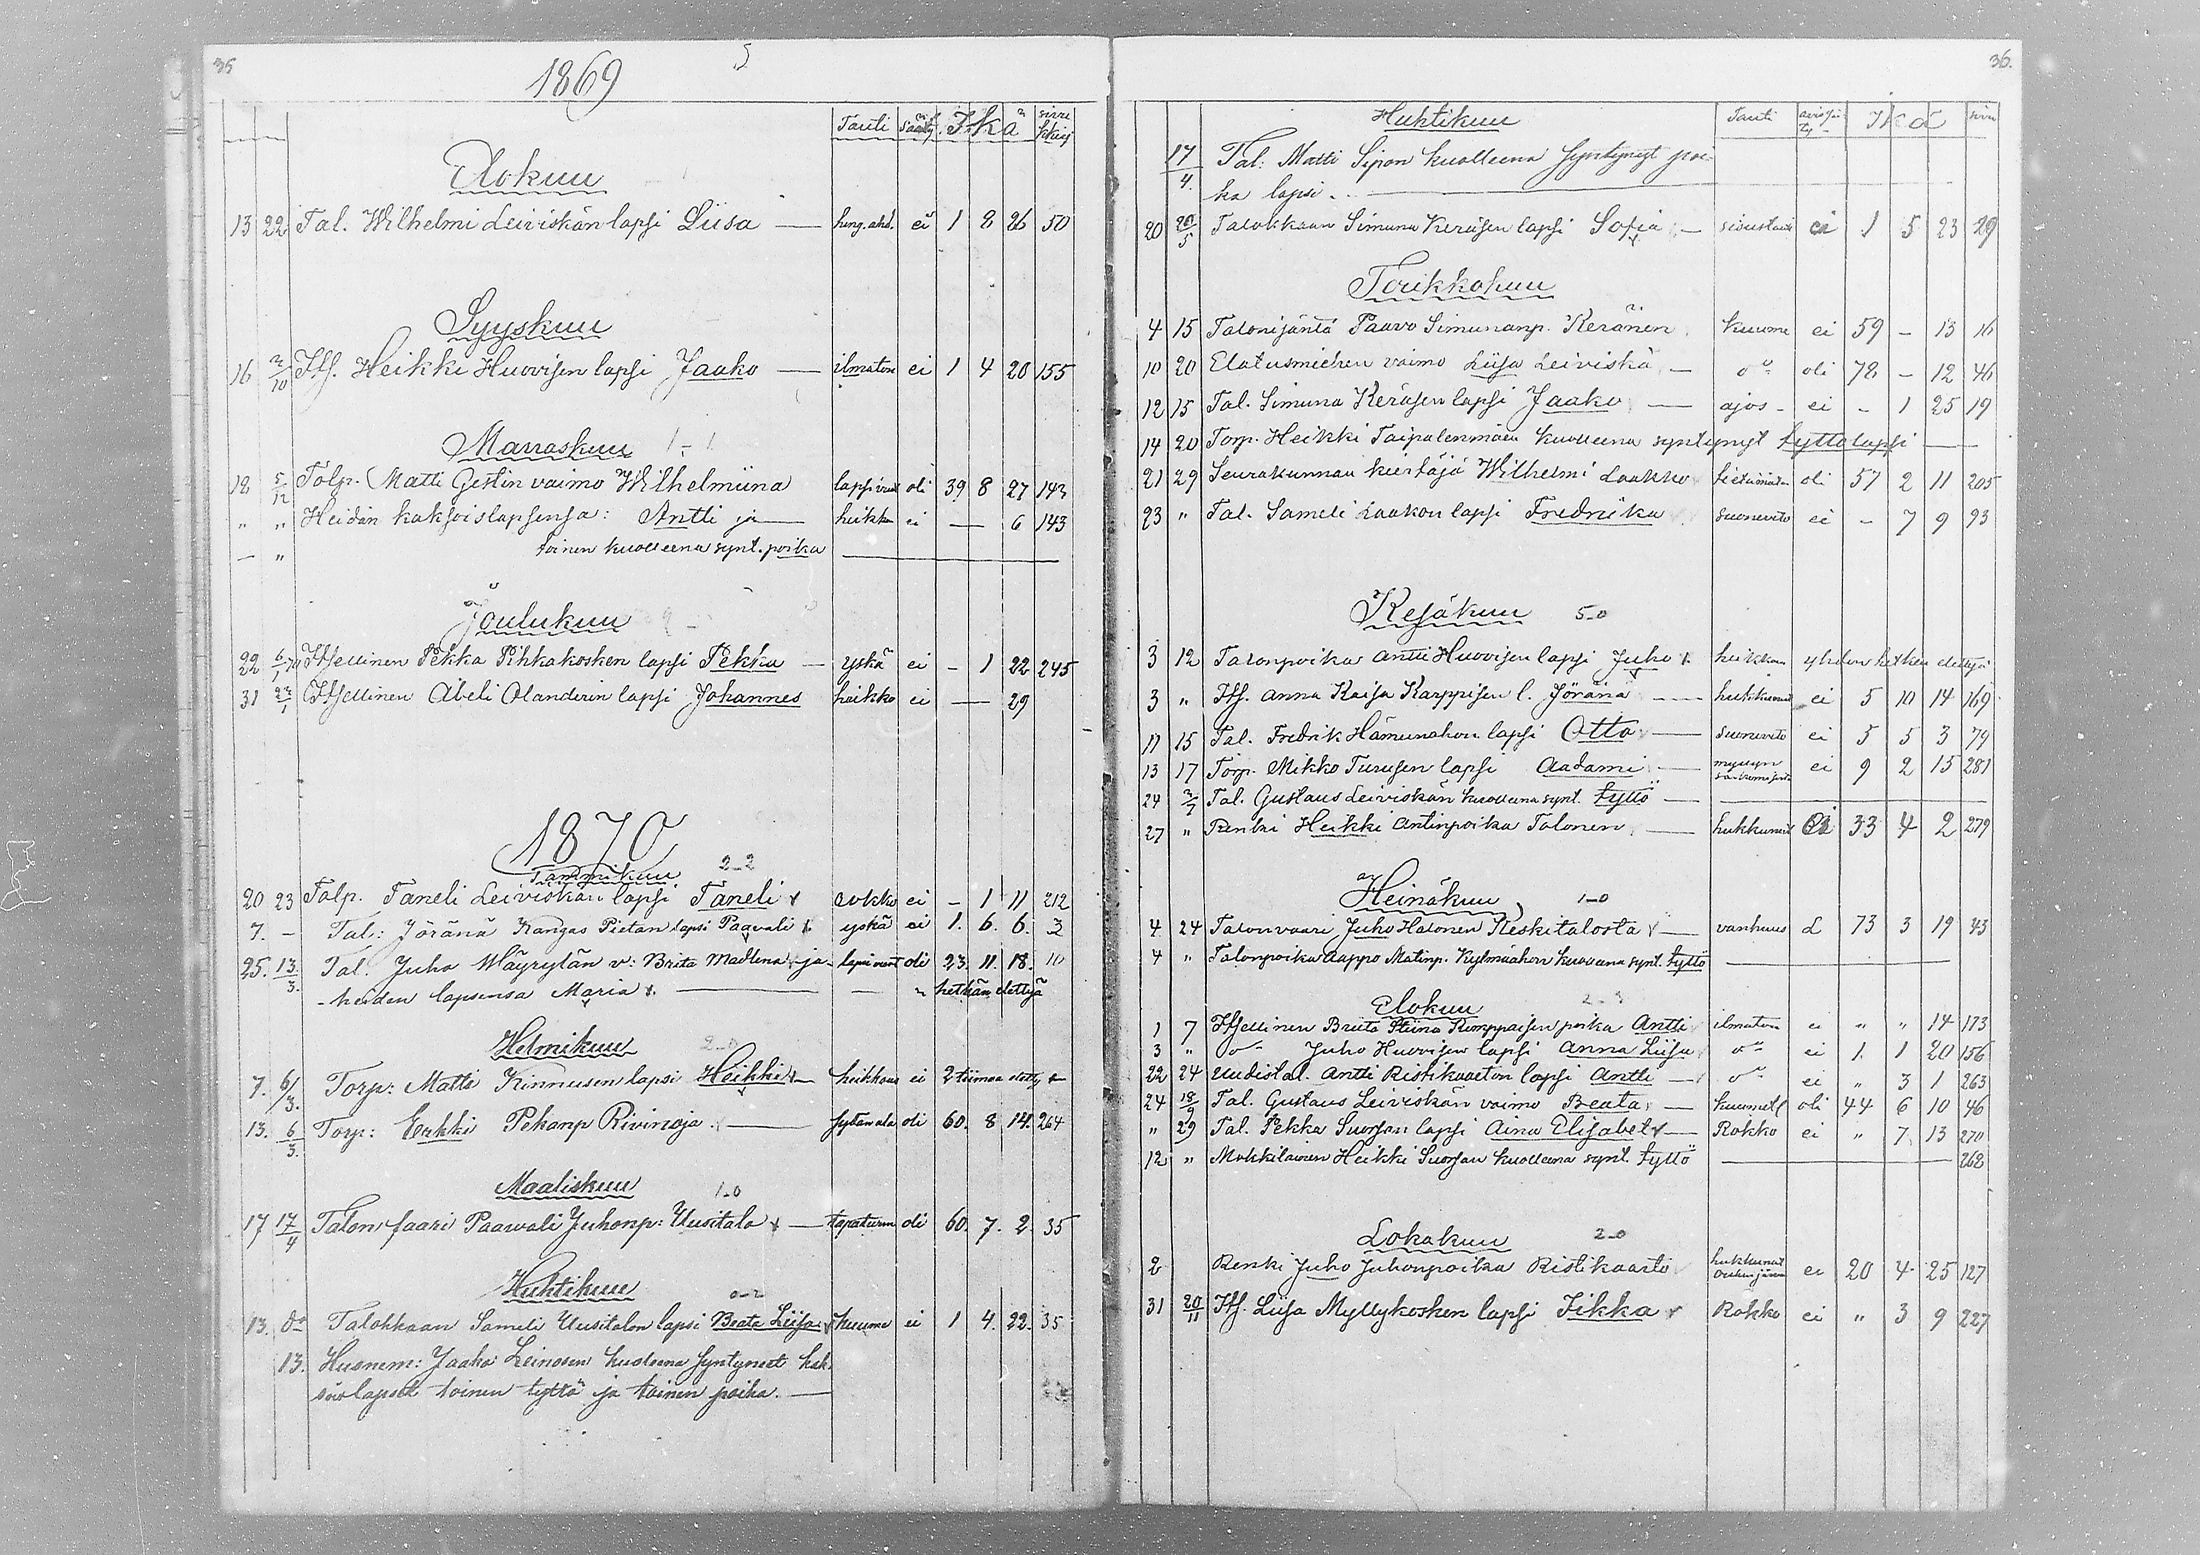 35
1869
5
Tauti sääty Ikä sivu kkirj
Elokuu
13 22 Tal. Wilhelmi Leiviskän lapsi Liisa — heng. ahd. ei 1 8 26 50
Syyskuu
16 2/10 Its. Heikki Huovisen lapsi Jaako — ilmaton ei 1 4 20 155
Marraskuu 1-1
12 5/12 Talp. Matti Gestin vaimo Wilhelmiina lapsivuot oli 39 8 27 143
" " Heidän kaksoislapsensa: Antti ja — heikko ei — 6 143
— " toinen kuolleena synt. poika —
Joulukuu
22 6/1 70 Itsellinen Pekka Pihkakosken lapsi Pekka — yskä ei - 1 22 245
31 22/1 Itsellinen Abeli Olanderin lapsi Johannes heikko ei — 29
1870
Tammikuu 2-2
20 23 Talp. Taneli Leiviskän lapsi Taneli rokko ei - 1 11 212
7. - Tal: Jöränä Kangas Pietan lapsi Paavali yskä ei 1. 6. 6. 3
25. 13/3. Tal. Juho Wäyrylän v: Brita Madlena ja lapsivuot oli 23. 11. 18. 10
- heidän lapsensa Maria — — " hetkän elettyä
Helmikuu 2-0
7. 6/3. Torp: Matti Kinnusen lapsi Heikki — heikkous ei 2 tiimaa eletty
13. 6/3. Torp: Erkki Pekanp Rivinoja — sydänala oli 60. 8 14. 264
Maaliskuu 1-0
17 17/4 Talon faari Paawali Juhonp: Uusitalo — tapaturm oli 60. 7. 2. 35
Huhtikuu 0-2
13. do Talokkaan Sameli Uusitalon lapsi Beata Liisa kuume ei 1 4. 22. 35
13. Huonem: Jaako Leinosen kuolleena syntyneet kak-
soislapset toinen tyttö ja toinen poika. —
36.
Huhtikuu Tauti aviosääty Ikä sivu
17/4. Tal: Matti Sipon kuolleena syntynyt poi-
ka lapsi. —
20 20/5 Talokkaan Simuna Keräsen lapsi Sofia — sisustauti ei 1 5 23 29
Toukkokuu
4 15 Talonisäntä Paavo Simunanp. Keränen kuume ei 59 - 13 16
10 20 Elatusmiehen vaimo Liisa Leiviskä — o" oli 78 - 12 46
12 15 Tal. Simuna Keräsen lapsi Jaako — ajos - ei - 1 25 19
14 20 Torp. Heikki Taipalenmäen kuolleena syntynyt tyttölapsi —
21 29 Seurakunnan kiertäjä Wilhelmi Laakko oli 57 2 11 205
23 " Tal. Sameli Laakon lapsi Fredriika suonveto ei - 7 9 93
Kesäkuu 5-0
3 12 Talonpoika Antti Huovisen lapsi Juho heikkous yhden hetken elettyä
3 " Its. Anna Kaisa Karppisen l. Jöränä — hukkunut ei 5 10 14 169
11 15 Tal. Fredrik Hämeenahon lapsi Otto — suonveto ei 5 5 3 79
13 17 Torp. Mikko Turusen lapsi Aadami — ei 9 2 15 281
24 3/7 Tal. Gustaus Leiviskän kuolleena synt. tyttö —
27 " Renki Heikki Antinpoika Talonen — hukkunut ei 33 4 2 279
Heinäkuu 1-0
4 24 Talonvaari Juho Halonen Keskitalosta — vanhuus L 73 3 19 43
4 " Talonpoika Aappo Matinp. Kylmäahon kuolleena synt. tyttö —
Elokuu
1 7 Itsellinen Briita Stiina Kemppaisen poika Antti ilmaton ei " " 14 173
3 " o" Juho Huovisen lapsi Anna Liisa o" ei 1 1 20 156
22 24 Uudistal. Antti Ristikaarton lapsi Antti — o" ei " 3 1 263
24 18/9 Tal. Gustaus Leiviskän vaimo Beata — kuumet oli 44 6 10 46
" 29 Tal. Pekka Suorsan lapsi Aina Elisabet — Rokko ei " 7 13 270
12 " Mökkiläinen Heikki Suorsan kuolleena synt. tyttö — 262
Lokakuu 2-0
2 Renki Juho Juhonpoika Ristikaarto hukkunut Oulunjärven ei 20 4 25 127
31 20/11 Its. Liisa Myllykosken lapsi Iikka Rokko ei " 3 9 227